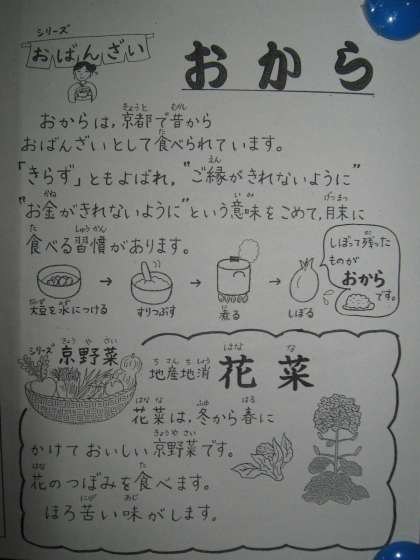 シリーズ
おばんざい
おから
おからは，京都で昔から
おばんざいとして食べられています。
「きらず」ともよばれ，"ご縁がきれないように"
"お金がきれないように"という意味をこめて，月末に
食べる習慣があります。
大豆を水につける → すりつぶす → 煮る → しぼる
しぼって残った
ものが
おから
です。
シリーズ 京野菜
地産地消 花菜
花菜は，冬から春に
かけておいしい京野菜です。
花のつぼみを食べます。
ほろ苦い味がします。